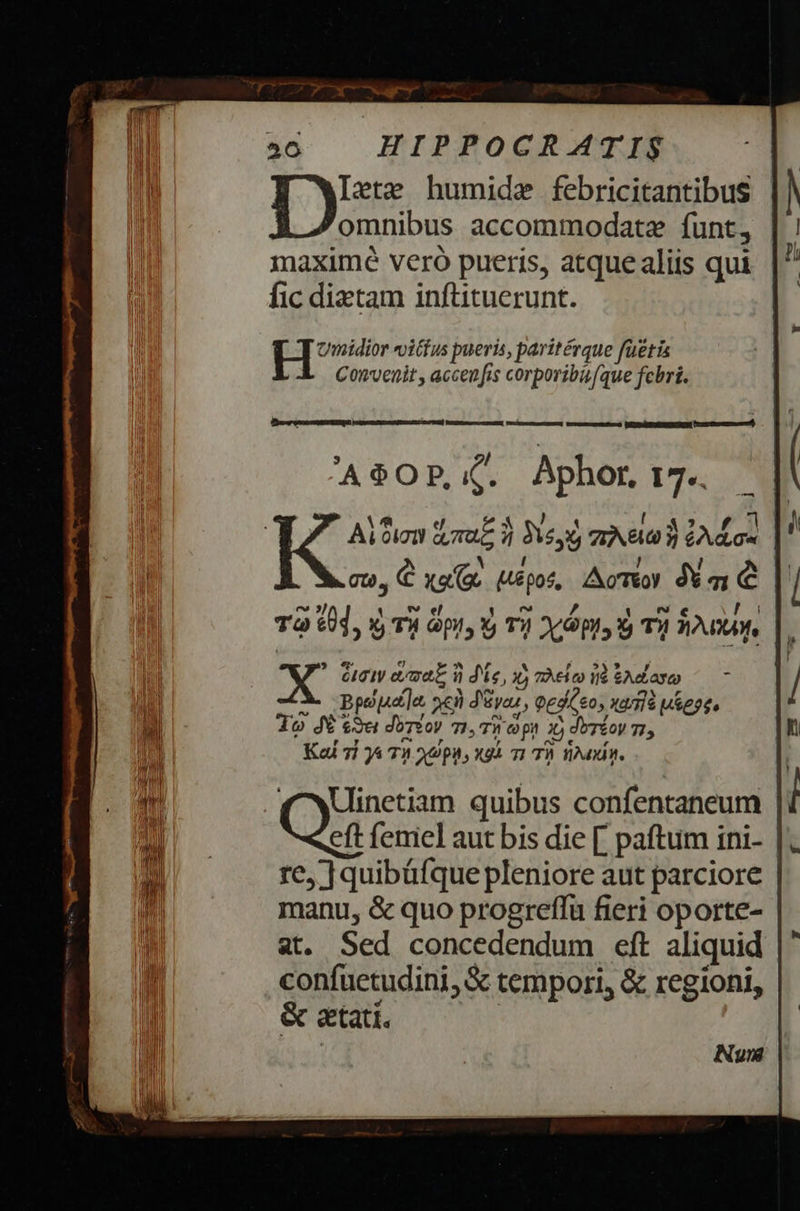 20 HIPPOCRATIS
DIætæ humidæ febricitantibus
omnibus accommodatæ ſunt,
maximè verò pueris, atque aliis qui
ſic diætam inſtituerunt.
HUmidior victus pueris, paritérque ſuëtis
Convenit, accenſis corporibúſque febri.
ἈΦΟΡ, ιζ. Aphor, 17.
ΚΑὶ οἷσιν ἅπαξ ἢ δὶς, καὶ πλείω ἢ ἐλάσ-
σω, καὶ κατὰ μέρος, Δοτέον δέ τι καὶ
τῷ ἔθει, καὶ τῇ ὥρῃ, καὶ τῇ χώρῃ, καὶ τῇ ἡλικίῃ.
Χ' οἷσιν ἅπαξ ἢ δίς, καὶ πλείω ἠὲ ἐλάσσω
Βρώματα χρὴ δοῦναι, φράζεο, κατὰ μέρος.
Τῷ δὲ ἔθει δοτέον τι, τῇ ὥρῃ καὶ δοτέον τι,
Καί τί γε τῇ χώρῃ, καί τι τῇ ἡλικίῃ.
QUinetiam quibus conſentaneum
eſt ſemel aut bis die [ paſtum ini-
re, ] quibúſque pleniore aut parciore
manu, & quo progreſſu fieri oporte-
at. Sed concedendum eſt aliquid
conſuetudini, & tempori, & regioni,
& ætati.
Num